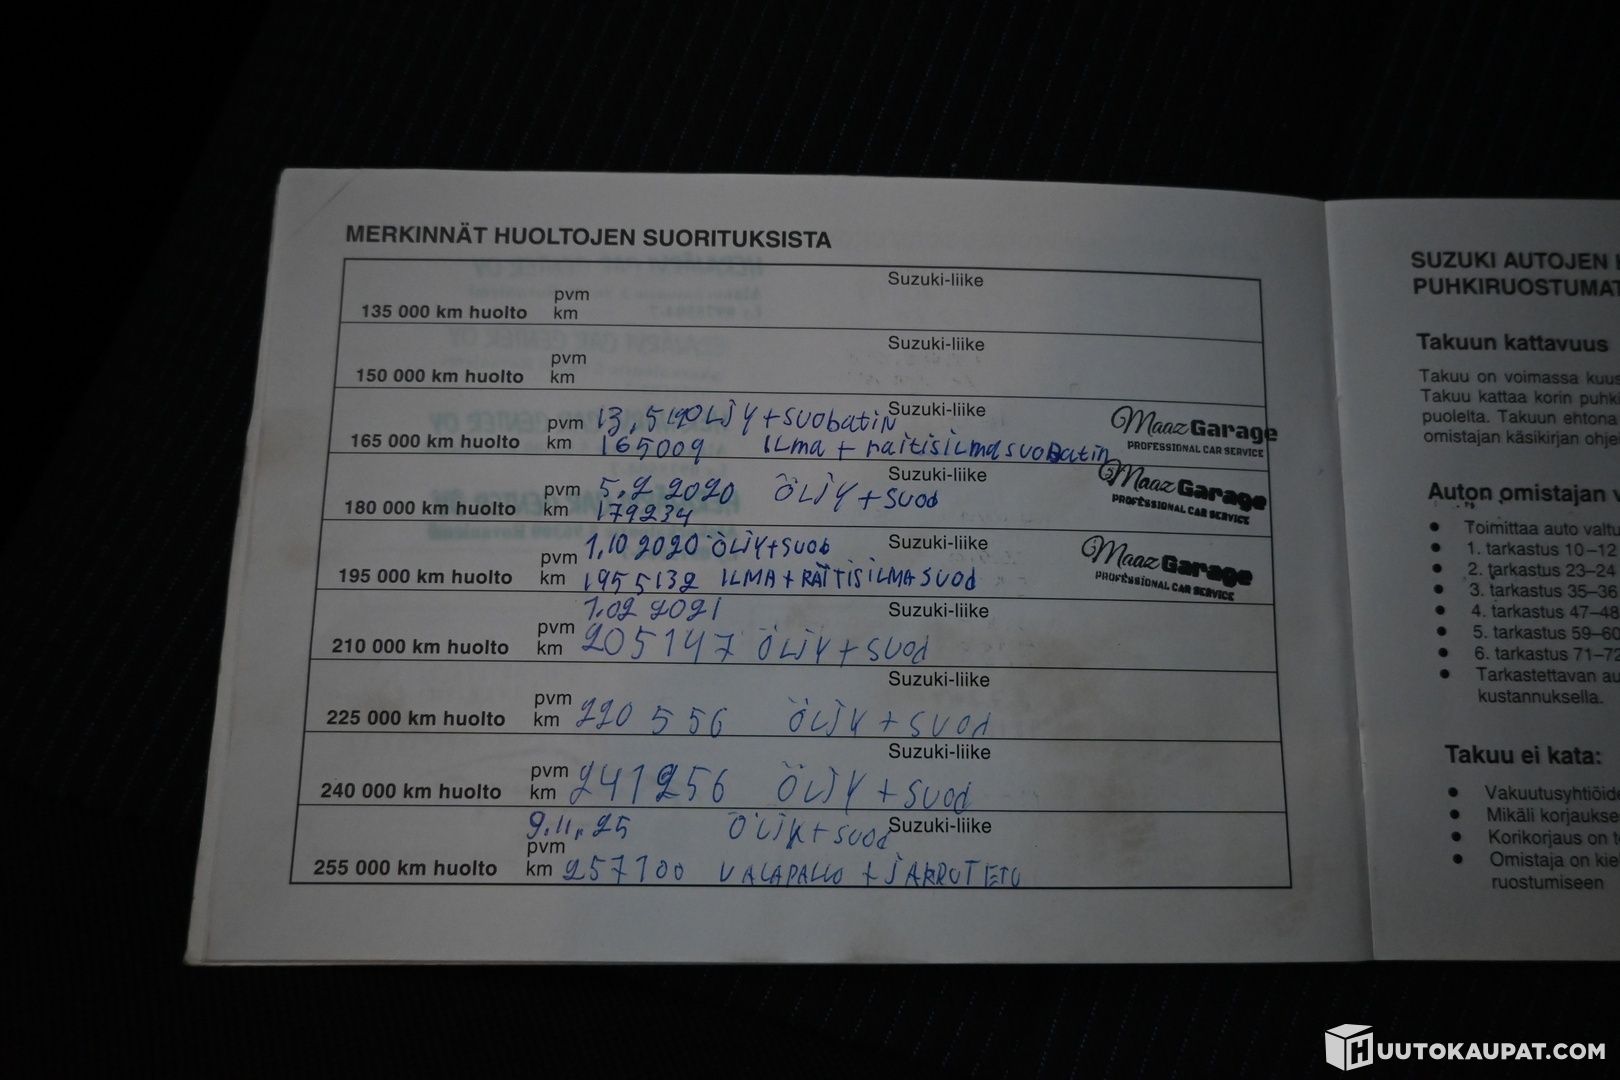 MERKINNÄT HUOLTOJEN SUORITUKSISTA
Suzuki-liike
pvm
135 000 km huolto km
Suzuki-liike
pvm
150 000 km huolto km
Suzuki-liike
pvm 13.5 19 ÖLJY + SUObatiN
165 000 km huolto km 165009 ILma + raitisilmasuobatin
Maaz Garage
PROFESSIONAL CAR SERVICE
Suzuki-liike
pvm 5.2 2020 ÖLJY + SUOd
180 000 km huolto km 179234
Maaz Garage
PROFESSIONAL CAR SERVICE
Suzuki-liike
pvm 1.10 2020 ÖLJY + SUOb
195 000 km huolto km 1955132 ILMA + RAITISILMA SUOd
Maaz Garage
PROFESSIONAL CAR SERVICE
1.02 2021
Suzuki-liike
pvm
210 000 km huolto km 205147 ÖLJY + SUOd
Suzuki-liike
pvm
225 000 km huolto km 220 556 ÖLJY + SUOd
Suzuki-liike
pvm
240 000 km huolto km 241256 ÖLJY + SUOd
9.11.25 ÖLJY + SUOd
Suzuki-liike
pvm
255 000 km huolto km 257100 VALAPALLO + JARRUT ETU
SUZUKI AUTOJEN
PUHKIRUOSTUMAT
Takuun kattavuus
Takuu on voimassa kuus
Takuu kattaa korin puhki
puolelta. Takuun ehtona
omistajan käsikirjan ohje
Auton omistajan v
● Toimittaa auto valtu
● 1. tarkastus 10–12
● 2. tarkastus 23–24
● 3. tarkastus 35–36
● 4. tarkastus 47–48
● 5. tarkastus 59–60
● 6. tarkastus 71–72
● Tarkastettavan au
kustannuksella.
Takuu ei kata:
● Vakuutusyhtiöide
● Mikäli korjaukse
● Korikorjaus on t
● Omistaja on kie
ruostumiseen
HUUTOKAUPAT.COM